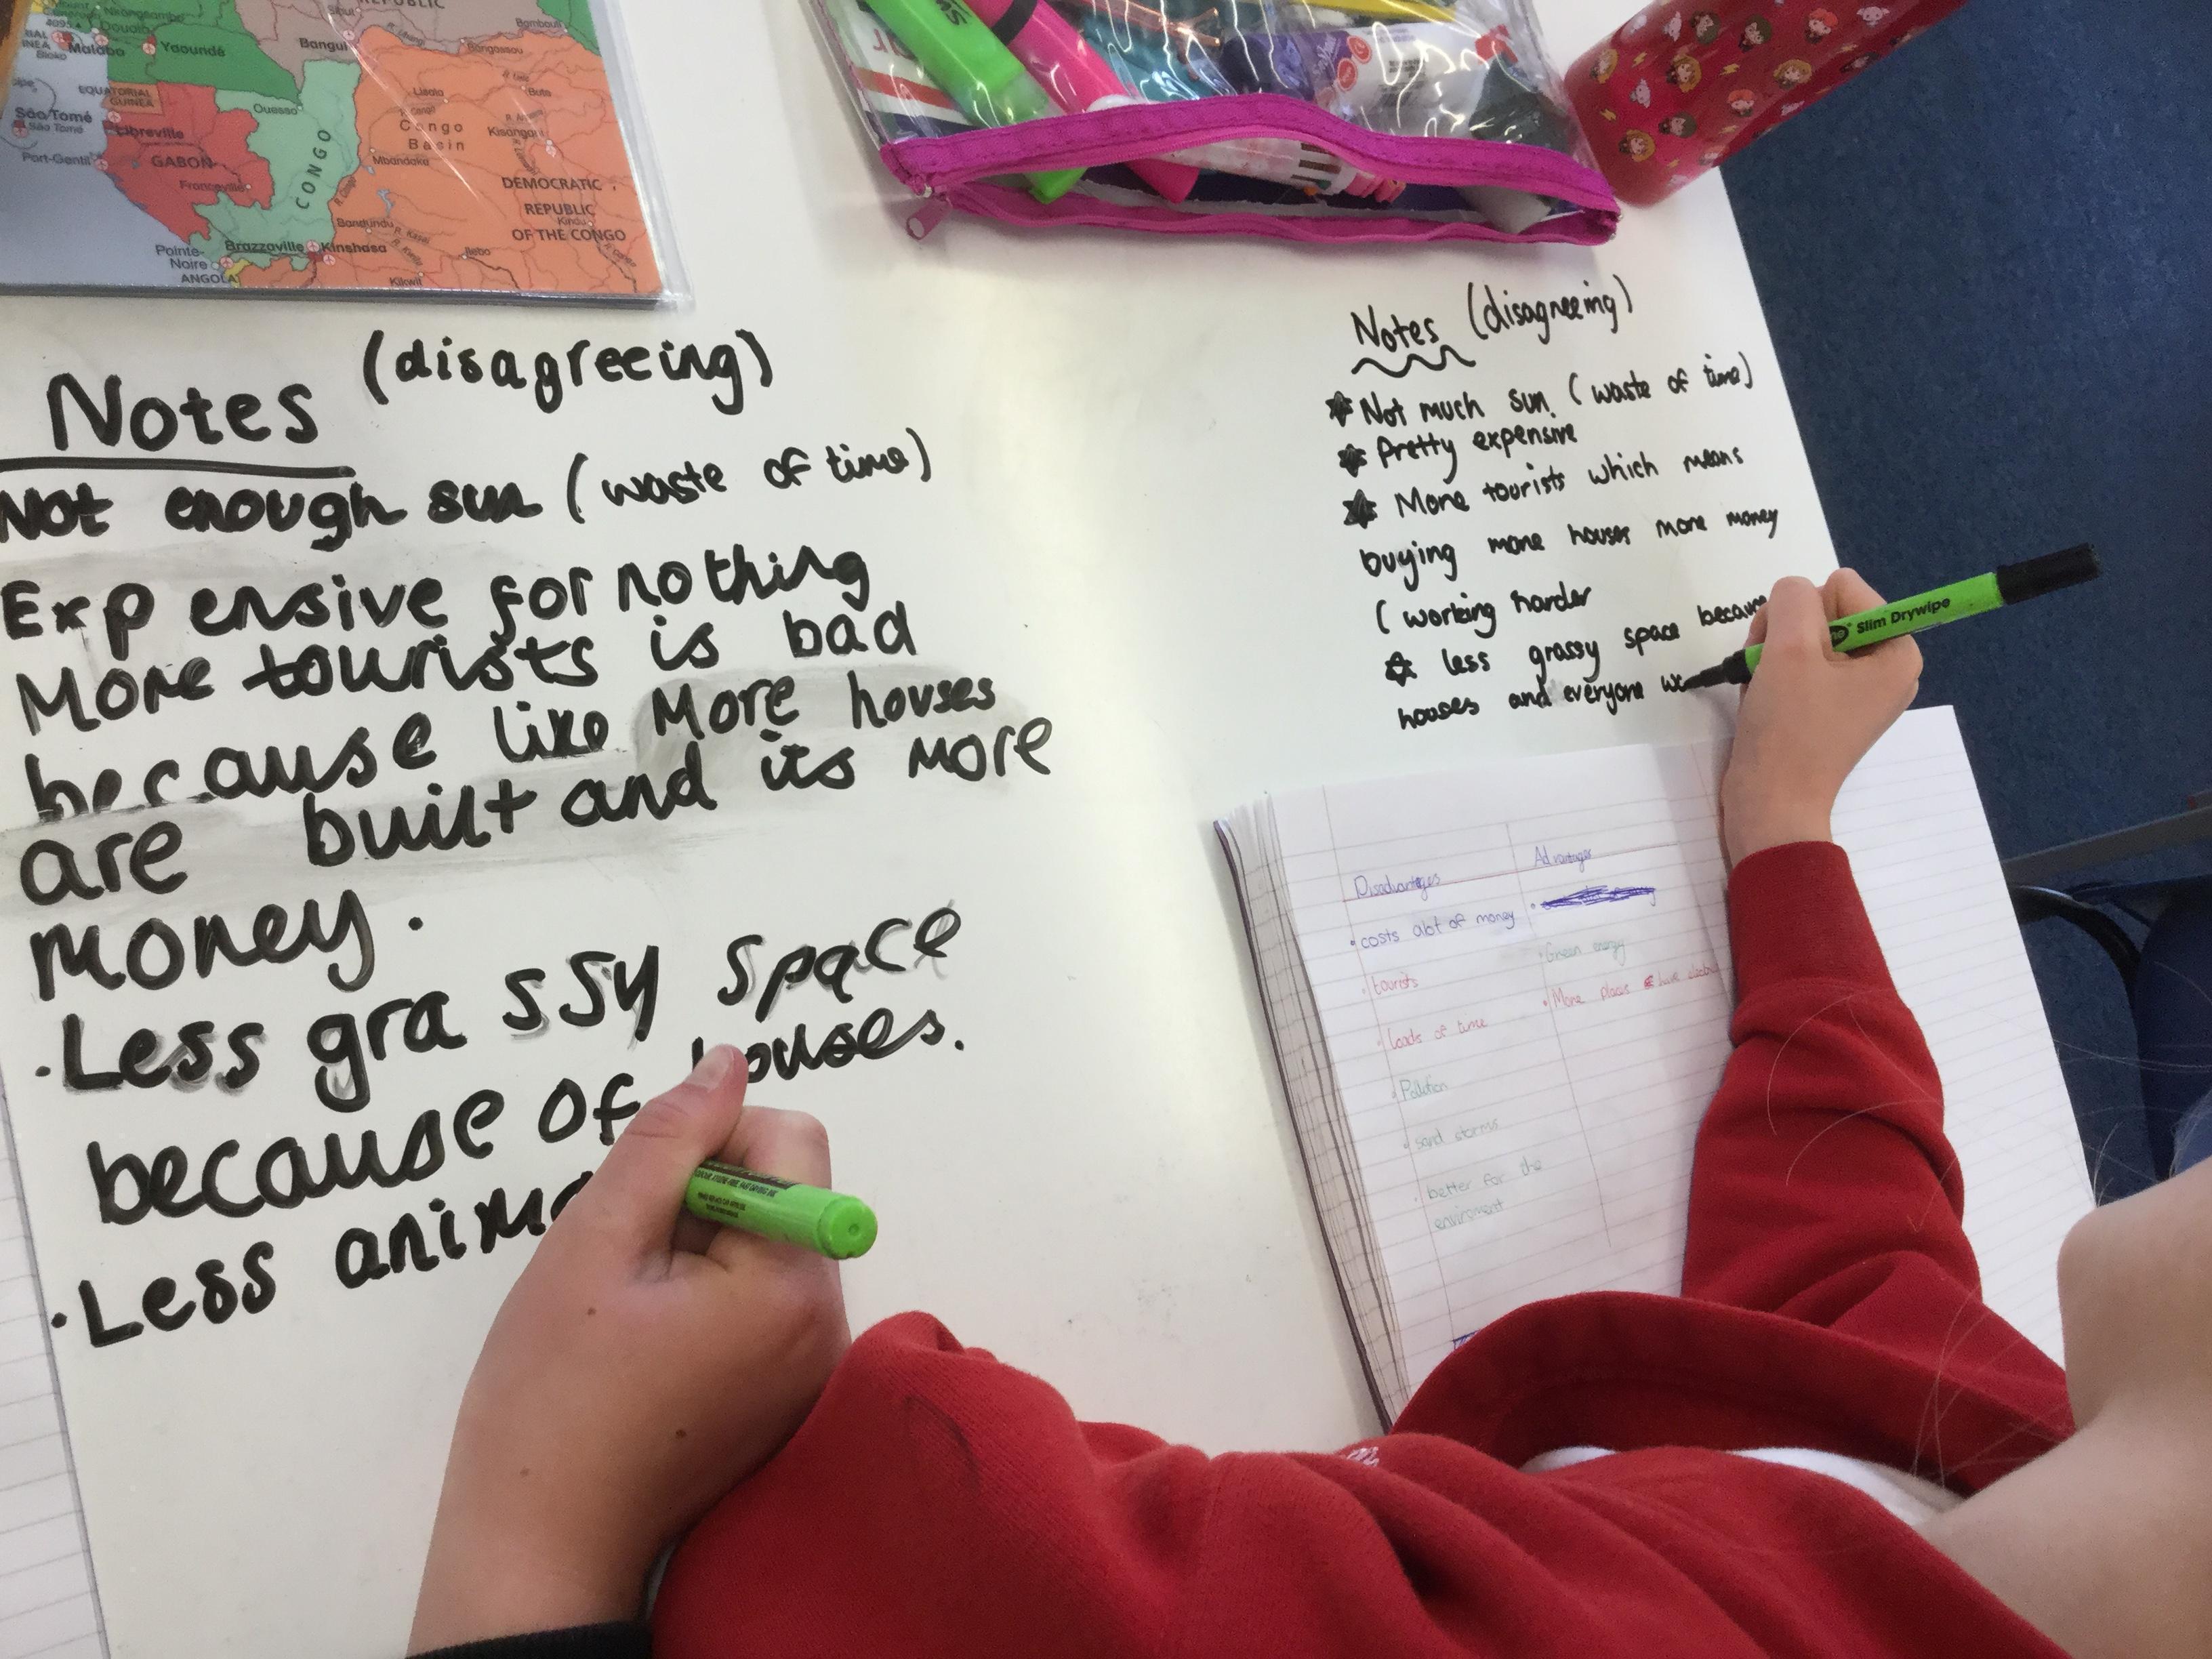 REPUBLIC
4095
Douala
Malabo
Yaoundé
Bangui
Bangassou
Bioko
EQUATORIAL
GUINEA
Ouesso
Lisala
Buta
São Tomé
São Tomé
Libreville
Congo
Basin
Kisangani
Port-Gentil
GABON
CONGO
Mbandaka
Franceville
DEMOCRATIC
REPUBLIC
Kindu
OF THE CONGO
Bandundu
R. Kasai
Brazzaville
Kinshasa
Pointe-
Noire
ANGOLA
Kikwit
Notes (disagreeing)
Not enough sun (waste of time)
Expensive for nothing
More tourists is bad
because like More houses
are built and its more
money.
·Less grassy space
because of houses.
·Less
Notes (disagreeing)
Not much sun. (waste of time)
Pretty expensive
More tourists which means
buying more houses more money
(working harder
less grassy space because
houses and everyone
Slim Drywipe
Disadvantages Advantages
• costs alot of money
• tourists • Green energy
• loads of time • More places have
• Pollution
• sand storms
• better for the
enviroment